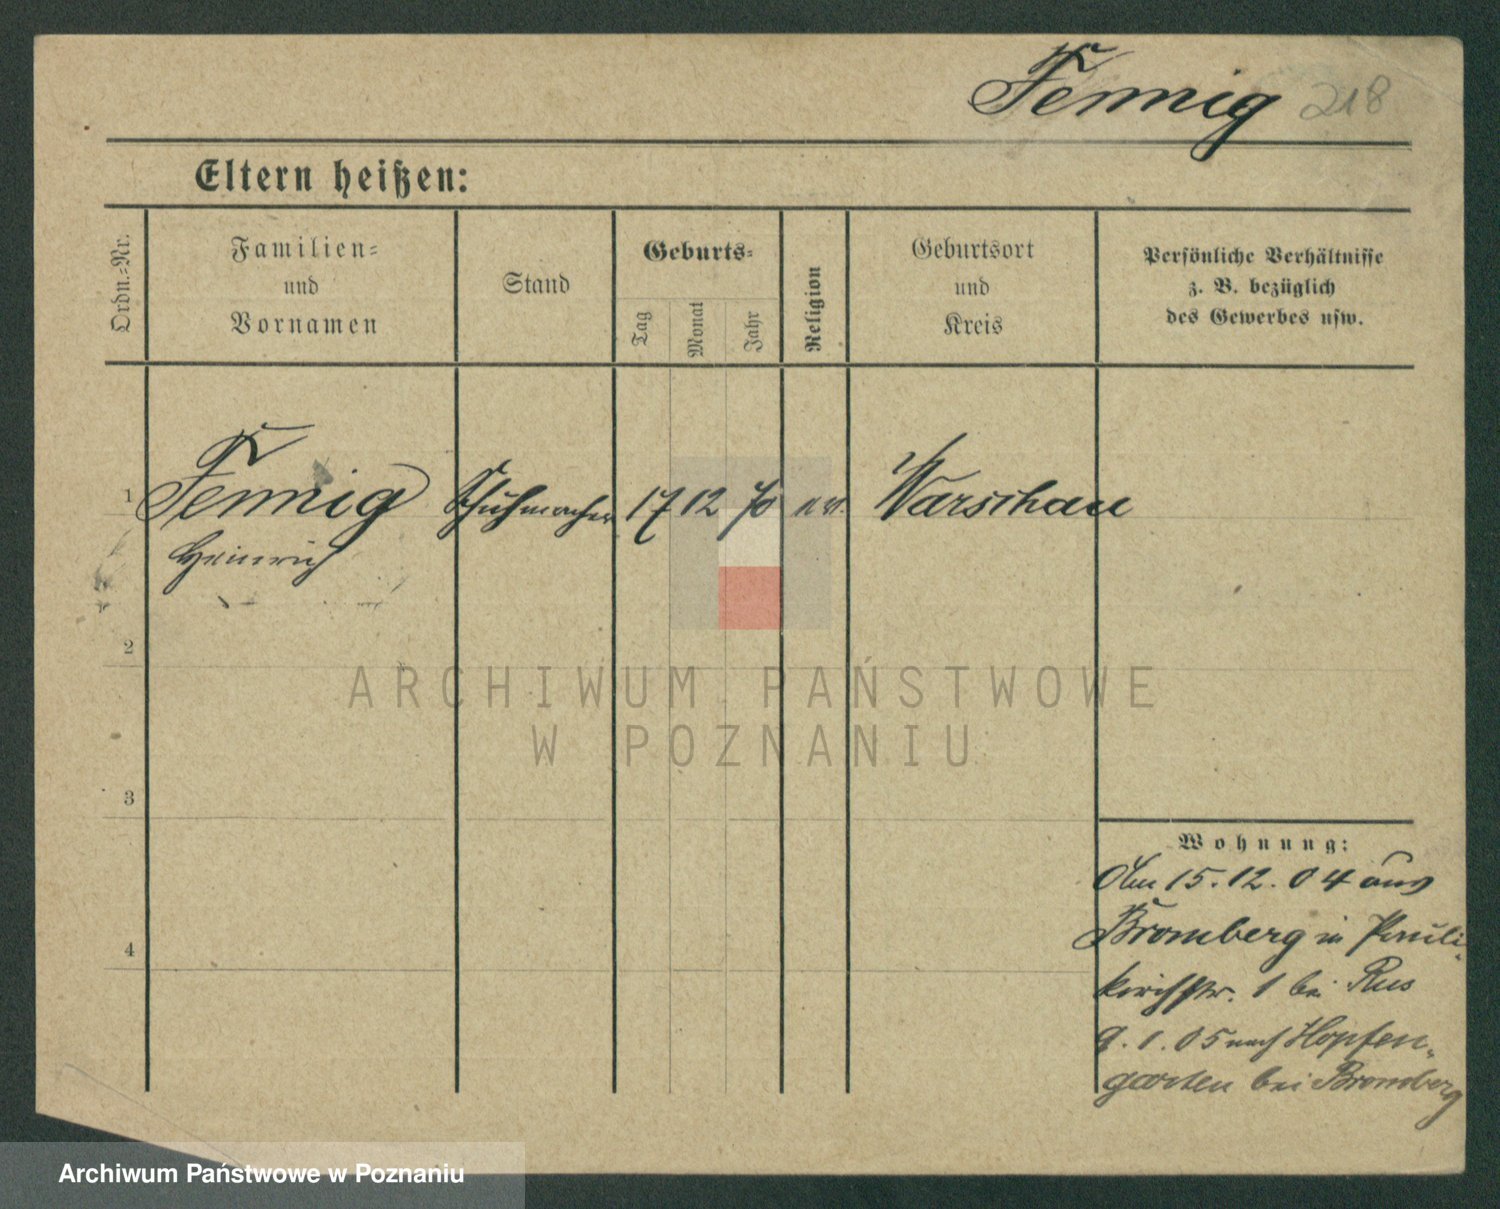 Fennig 218
Eltern heißen:
Ordn.-Nr.
Familien-
und
Vornamen
Stand
Geburts-
Tag
Monat
Jahr
Religion
Geburtsort
und
Kreis
Persönliche Verhältnisse
z. B. bezüglich
des Gewerbes usw.
1 Fennig Schuhmacher 17 12 70 ev. Warschau
Heinrich
2
3
4
ARCHIWUM PAŃSTWOWE
W POZNANIU
Wohnung:
Am 15.12.04 aus
Bromberg in Pauli-
kirchstr. 1 bei Rus
9.1.05 nach Hopfen-
garten bei Bromberg
Archiwum Państwowe w Poznaniu